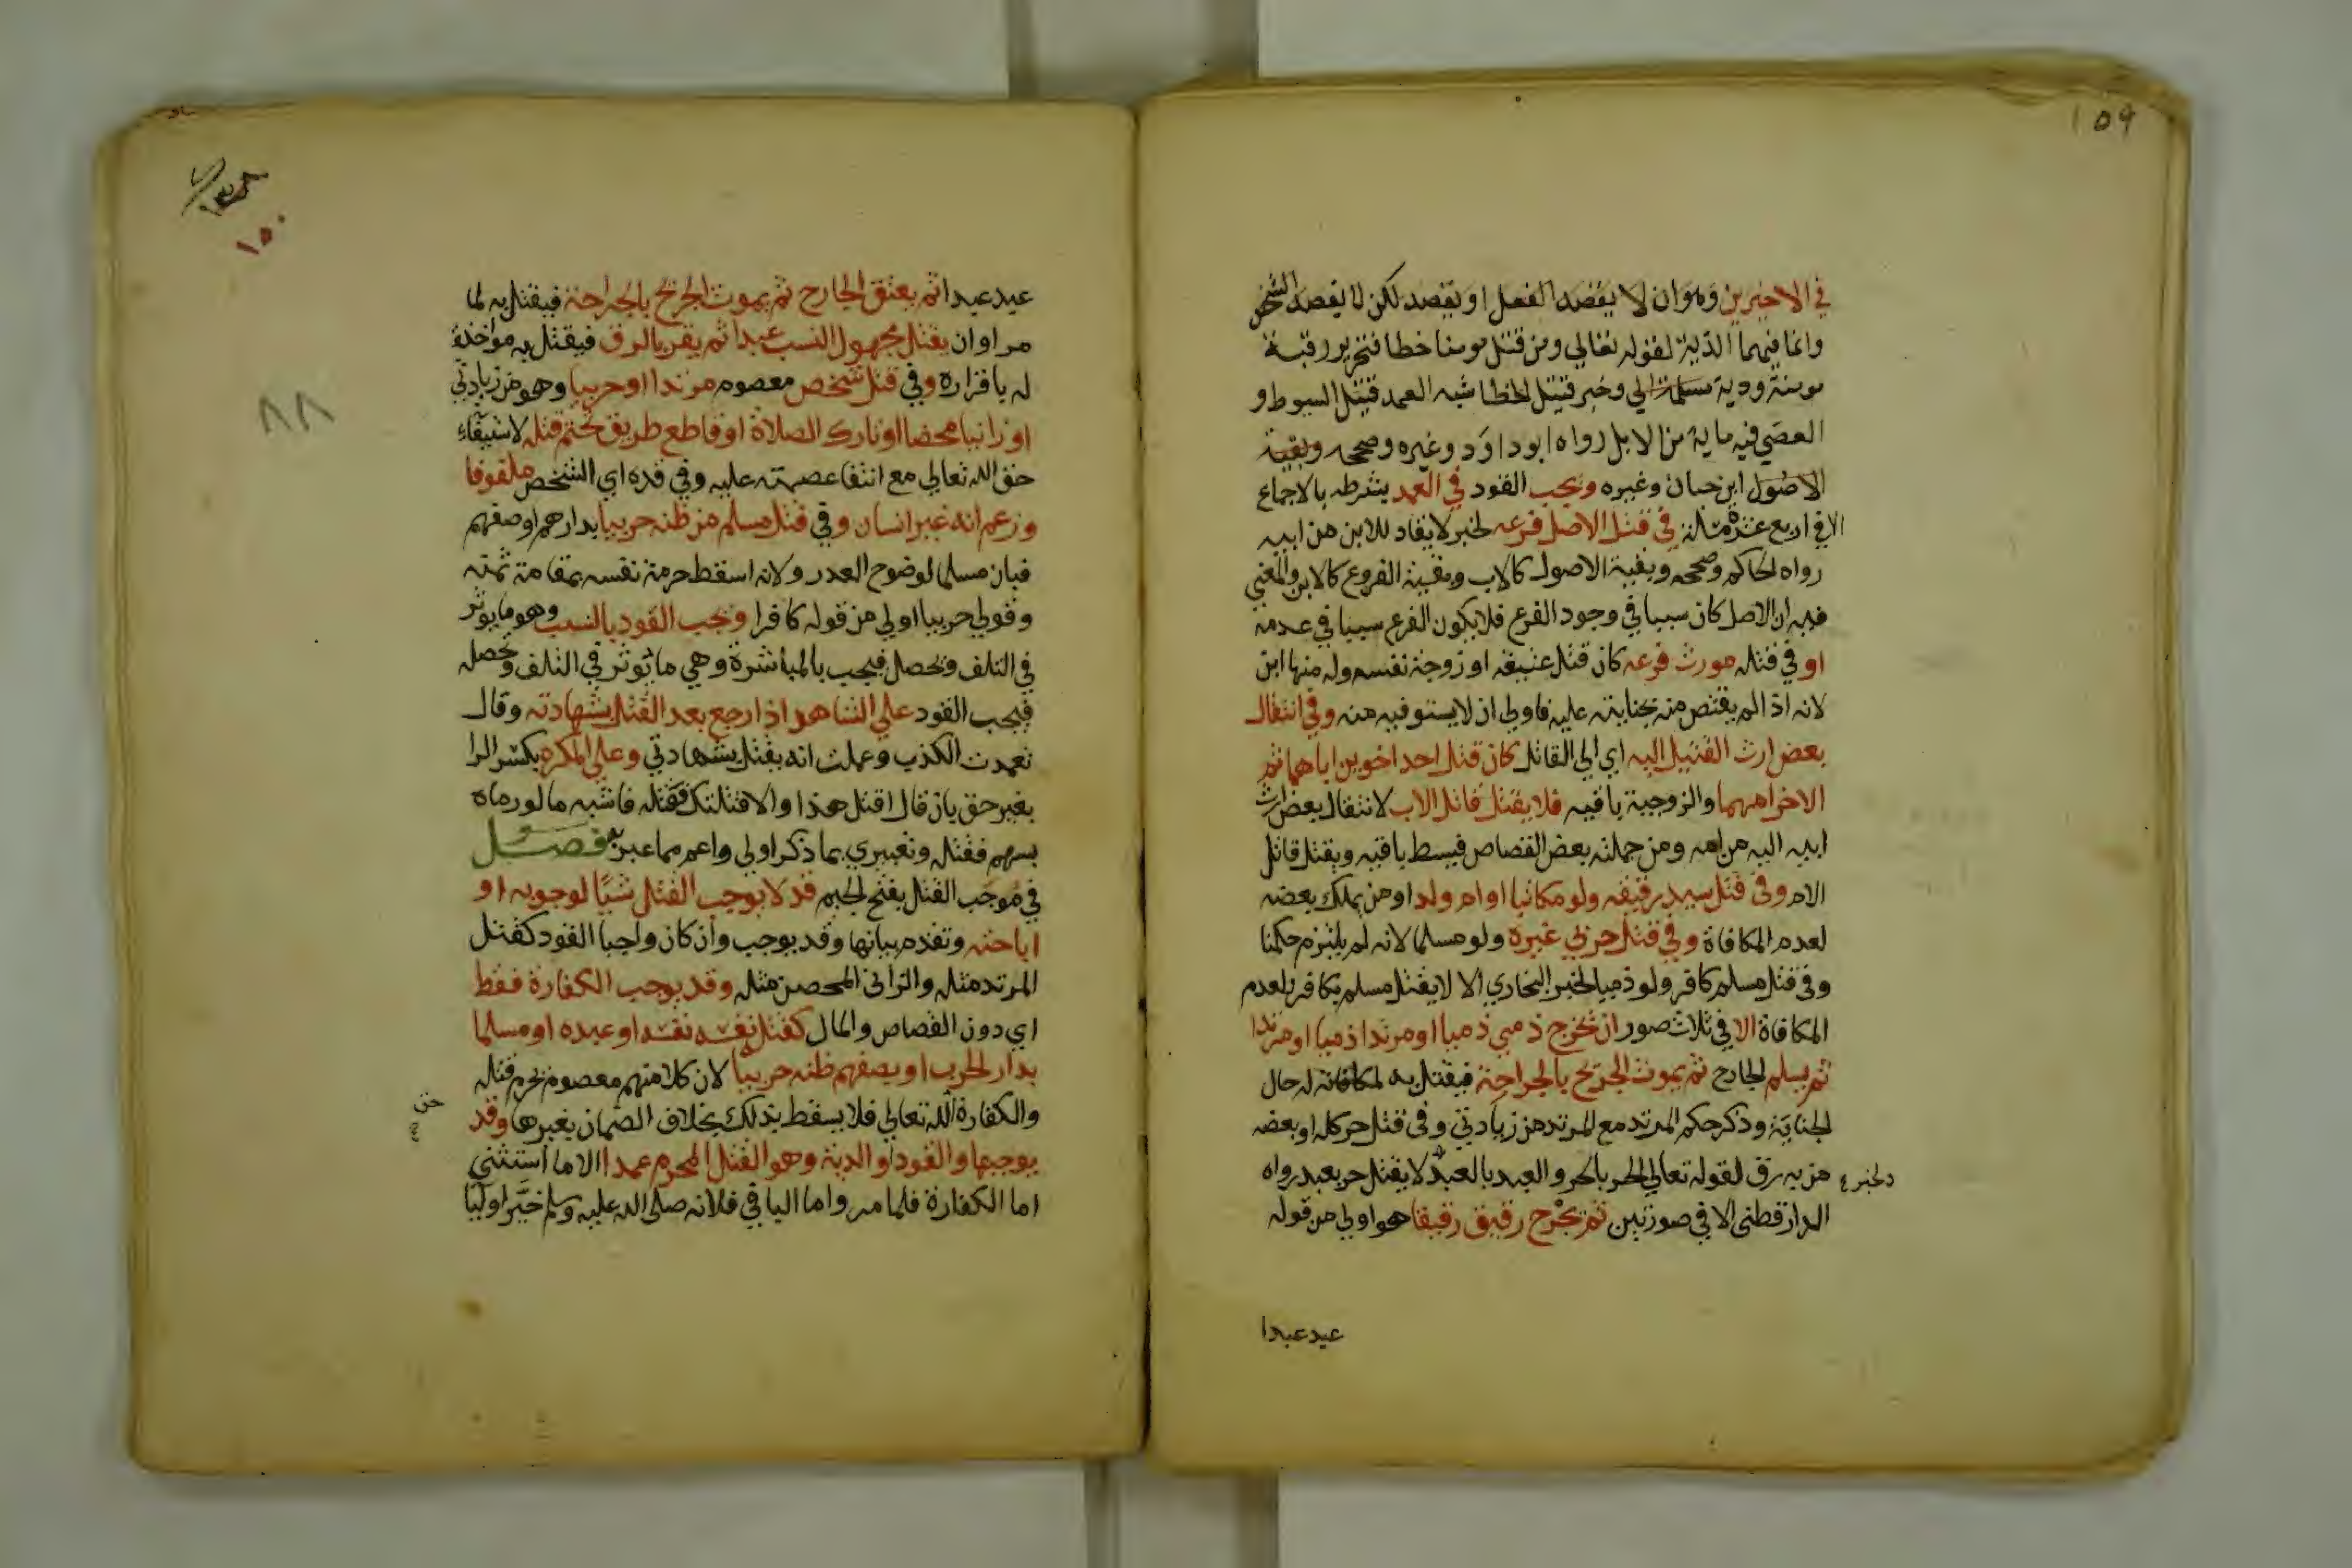 ١٥٩
في الاخيرين وهو ان لا يقصد الفعل او يقصد لكن لا يقصد الشخص
وانما فيهما الدية لقوله تعالي ومن قتل مومنا خطا فتحرير رقبة
مومنة ودية مسلمة الي وخبر قتيل الخطا شبه العمد قتيل السوط و
العصي فيه ماية من الابل رواه ابو داود وغيره وصححه وبقية
الاصول ابن حبان وغيره ويجب القود في العمد بشرطه بالاجماع
الا في اربع عشرة مسالة في قتل الاصل فرعه لخبر لا يقاد للابن من ابيه
رواه الحاكم وصححه وبقية الاصول كالاب وبقية الفروع كالابن والمعني
فيه ان الاصل كان سببا في وجود الفرع فلا يكون الفرع سببا في عدمه
او في قتله مورث فرعه كان قتل عتيقه او زوجة نفسه وله منها ابن
لانه اذا لم يقتص منه بجنايته عليه فاولي ان لا يستوفيه منه وفي انتقال
بعض ارث القتيل اليه اي الي القاتل كان قتل احد اخوين اباهما ثم
الاخر امهما والزوجية باقيه فلا يقتل قاتل الاب لانتقال بعض ارث
ابيه اليه من امه ومن جملته بعض القصاص فيسقط باقيه ويقتل قاتل
الام وفي قتل سيد رقيقه ولو مكاتبا او ام ولد او من يملك بعضه
لعدم المكافاة وفي قتل حربي غيره ولو مسلما لانه لم يلتزم حكمنا
وفي قتل مسلم كافر ولو ذميا لخبر البخاري الا لا يقتل مسلم بكافر لعدم
المكافاة الا في ثلاث صور ان يخرج ذمي ذميا او مرتدا ذميا او مرتدا
ثم يسلم الجارح ثم يموت الجريح بالجراحة فيقتل به لمكافاته له حال
الجناية وذكر حكم المرتد مع المرتد من زيادتي وفي قتل حر كله او بعضه
من به رق لقوله تعالي الحر بالحر والعبد بالعبد لا يقتل حر بعبد رواه
ولخبر
الدارقطني الا في صورتين ثم يجرح رقيق رقيقا هو اولي من قوله
عبد عبدا
١٥٠
٨٨
عبد عبدا ثم يعتق الجارح ثم يموت الجريح بالجراحة فيقتل به لما
مر او ان يقتل مجهول النسب عبدا ثم يقر بالرق فيقتل به مواخذة
له باقراره وفي قتل شخص معصوم مرتدا او حربيا وهو من زيادتي
او زانيا محضا او تارك الصلاة او قاطع طريق تحتم قتله لاستيفاء
حق الله تعالي مع انتفا عصمته عليه وفي قده اي الشخص ملفوفا
وزعم انه غير انسان وفي قتل مسلم من ظنه حربيا بدارهم او صفهم
فبان مسلما لوضوح العذر ولانه اسقط حرمة نفسه بمقامة ثمته
وقولي حربيا اولي من قوله كافرا ويجب القود بالسبب وهو ما يوثر
في التلف ويحصل فيجب بالمباشرة وهي ما توثر في التلف وتحصله
فيجب القود علي الشاهد اذا رجع بعد القتل بشهادته وقال
تعمدت الكذب وعملت انه يقتل بشهادتي وعلي المكره بكسر الرا
بغير حق بان قال اقتل هذا والا قتلتك فقتله فاشبه ما لو رماه
بسهم فقتله وتعبيري بما ذكر اولي واعم مما عبر به فصل
في موجب القتل بفتح الجيم قد لا يوجب القتل شيا لوجوبه او
اباحته وتقدم بيانها وقد يوجب وان كان واجبا القود كقتل
المرتد مثله والزاني المحصن مثله وقد يوجب الكفارة فقط
اي دون القصاص والمال كقتل نفسه نفسه او عبده او مسلما
بدار الحرب او بصفهم ظنه حربيا لان كلا منهم معصوم يحرم قتله
والكفارة لله تعالي فلا يسقط بذلك بخلاف الضمان بغيرها وقد
حق
يوجبها والقود او الدية وهو القتل المحرم عمدا الا ما استثني
اما الكفارة فلما مر واما الباقي فلانه صلي الله عليه وسلم خير اوليا